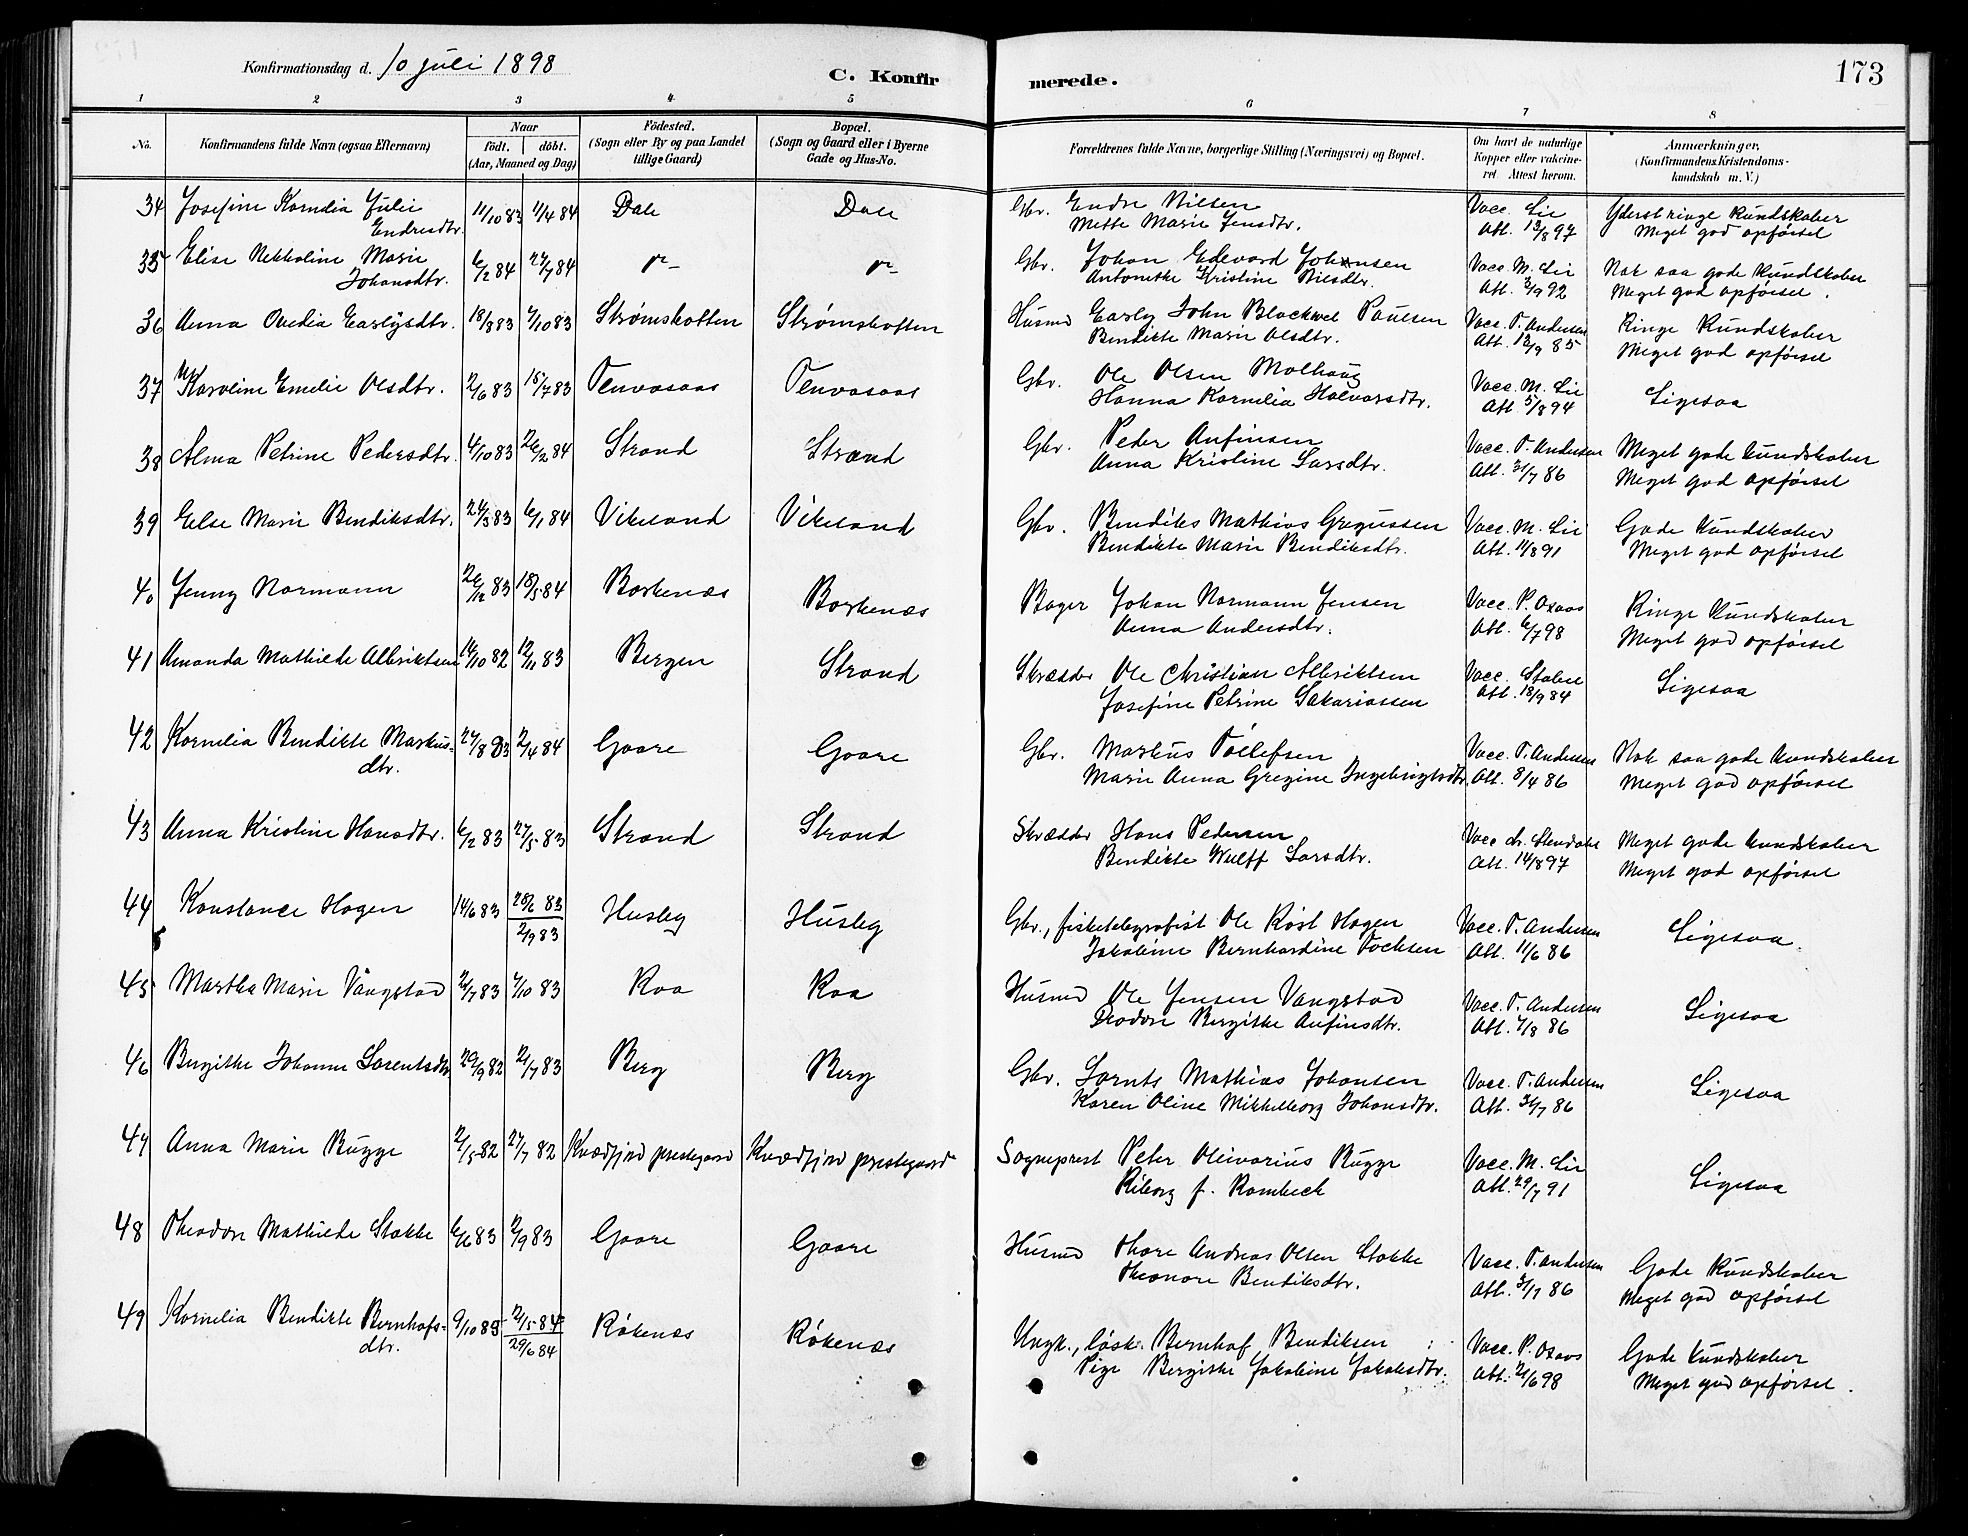 Konfirmationsdag d. 10 juli 1898
C. Konfir merede. 173
1 2 3 4 5 6 7 8
No. Konfirmandens fulde Navn (ogsaa Efternavn) Naar født. døbt. (Aar, Maaned og Dag) Fødested. (Sogn eller By og paa Landet tillige Gaard) Bopæl. (Sogn og Gaard eller i Byerne Gade og Hus-No. Forældrenes fulde Navne, borgerlige Stilling (Næringsvei) og Bopæl. Om havt de naturlige Kopper eller vakcineret. Attest herom. Anmærkninger, (Konfirmandens Kristendomskundskab m. V.)
34 Josefine Kornelia Julie 11/10 83 11/4 84 Dale Dale Gbr. Endre Nilsen Vacc. Lie Yderst ringe kundskaber
Endresdtr. Mette Marie Jensdtr. Att. 13/8 97 Meget god opførsel
35 Elise Nekkoline Marie 6/2 84 27/7 84 Gbr. Johan Edevard Johansen Vacc. M. Lie Nok saa gode kundskaber
Johansdtr. Antonette Kristine Nilsdtr. Att. 3/9 92 Meget god opførsel.
36 Anna Ovedia Earlysdtr. 18/8 83 7/10 83 Strømsbotten Strømsbotten Husmd Early John Blackwel Paulsen Vacc. T. Andersen Ringe kundskaber
Bendikte Marie Olsdtr. Att. 12/9 85 Meget god opførsel
37 Karoline Emelie Olsdtr. 2/6 83 15/7 83 Tenvasaas Tenvasaas Gbr. Ole Olsen Molhaug Vacc. M. Lie Ligesaa
Hanna Kornelia Halvarsdtr. Att. 5/8 94
38 Alma Petrine Pedersdtr. 4/10 83 26/2 84 Strand Strand Gbr. Peder Anfinsen Vacc. T. Andersen Meget gode kundskaber
Anna Kristine Larsdtr. Att. 31/7 86 Meget god opførsel
39 Else Marie Bendiksdtr. 24/3 83 6/1 84 Vikeland Vikeland Gbr. Bendiks Mathias Gregussen Vacc. M. Lie Gode kundskaber
Bendikte Marie Bendiksdtr. Att. 11/8 91 Meget god opførsel
40 Jenny Normann 26/12 83 18/5 84 Borkenæs Borkenæs Bager Johan Normann Jensen Vacc. P. Oxaas Ringe kundskaber
Anna Andersdtr. Att. 6/7 98 Meget god opførsel
41 Amanda Mathilde Albriktsen 14/10 82 12/11 83 Bergen Strand Skrædder Ole Christian Albriktsen Vacc. Stabel Ligesaa
Josefine Petrine Sakariassen Att. 18/9 84
42 Kornelia Bendikte Markus- 27/8 83 2/4 84 Gaare Gaare Gbr. Markus Tollefsen Vacc. T. Andersen Nok saa gode kundskaber
dtr. Marie Anna Gregine Ingebrigtsdtr. Att. 8/4 86 Meget god opførsel
43 Anna Kristine Hansdtr. 6/2 83 27/5 83 Strand Strand Skrædder Hans Pedersen Vacc Meget gode kundskaber
Bendikte Wulff Larsdtr. Att. 14/8 97 Meget god opførsel
44 Konstance Hagen 14/6 83 25/6 83 Husby Husby Gbr., fisketelegrafist Ole Kost Hagen Vacc. T. Andersen Ligesaa.
2/9 83 Jakobine Bernhardine Focksen Att. 11/6 86
45 Martha Marie Vangstad 24/7 83 7/10 83 Roa Roa Husmd Ole Jensen Vangstad Vacc. T. Andersen Ligesaa
Teodore Bergitte Anfinsdtr. Att. 7/8 86
46 Bergitte Johanne Lorentsdtr 29/9 82 21/7 83 Berg Berg Gbr. Lornts Mathias Johansen Vacc. T. Andersen Ligesaa
Karen Oline Mikkelborg Johansdtr. Att. 31/7 86
47 Anna Marie Bugge 2/5 82 27/7 82 Kvædfjord prestegaard Kvædfjord prestegaard Sogneprest Peter Oleivarius Bugge Vacc. M. Lie Ligesaa
Riborg f. Rombeck Att. 29/7 91
48 Theodore Mathilde Stokke 6/6 83 2/9 83 Gaare Gaare Husmd Thore Andreas Olsen Stokke Vacc. T. Andersen Gode kundskaber
Theonore Bendiksdtr. Att. 3/7 86 Meget god opførsel
49 Kornelia Bendikte Bernhofs- 9/10 83 21/5 84 Røkenæs Røkenæs Ungk., løsk. Bernhof Bendiksen Vacc. P. Oxaas Gode kundskaber
dtr. 29/6 84 Pige Bergitte Jakobine Jakobsdtr. Att. 21/6 98 Meget god opførsel.